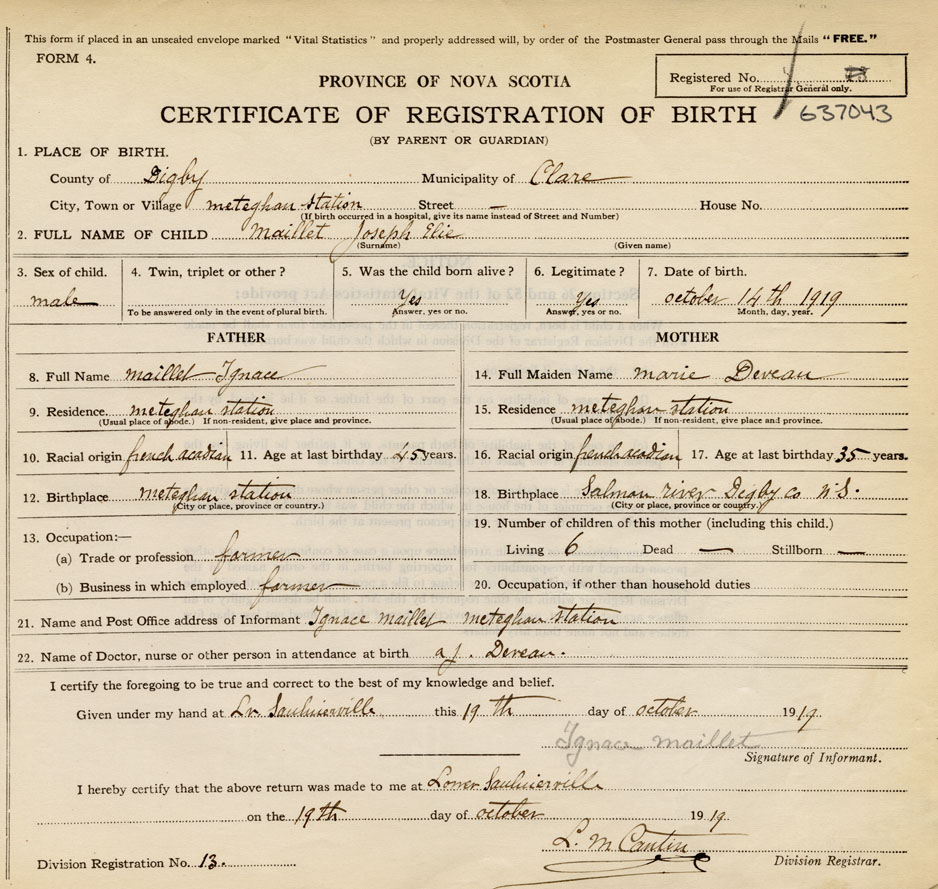 This form if placed in an unsealed envelope marked "Vital Statistics" and properly addressed will, by order of the Postmaster General pass through the Mails "FREE."
FORM 4.
Registered No.
For use of Registrar General only.
PROVINCE OF NOVA SCOTIA
CERTIFICATE OF REGISTRATION OF BIRTH 637043
(BY PARENT OR GUARDIAN)
1. PLACE OF BIRTH.
County of Digby Municipality of Clare
City, Town or Village meteghan station Street — House No.
(If birth occurred in a hospital, give its name instead of Street and Number)
2. FULL NAME OF CHILD Maillet Joseph Elie
(Surname) (Given name)
3. Sex of child. 4. Twin, triplet or other? 5. Was the child born alive? 6. Legitimate? 7. Date of birth.
male Yes Yes october 14th 1919
To be answered only in the event of plural birth. Answer, yes or no. Answer, yes or no. Month, day, year.
FATHER MOTHER
8. Full Name maillet Ignace 14. Full Maiden Name marie Deveau
9. Residence meteghan station 15. Residence meteghan station
(Usual place of abode.) If non-resident, give place and province. (Usual place of abode.) If non-resident, give place and province.
10. Racial origin french acadian 11. Age at last birthday 45 years. 16. Racial origin french acadian 17. Age at last birthday 35 years.
12. Birthplace meteghan station 18. Birthplace Salmon river Digby co N.S.
(City or place, province or country.) (City or place, province or country.)
19. Number of children of this mother (including this child.)
13. Occupation:—
(a) Trade or profession farmer Living 6 Dead — Stillborn —
(b) Business in which employed farmer 20. Occupation, if other than household duties
21. Name and Post Office address of Informant Ignace maillet meteghan station
22. Name of Doctor, nurse or other person in attendance at birth a j. Deveau.
I certify the foregoing to be true and correct to the best of my knowledge and belief.
Given under my hand at Lr Saulnierville this 19th day of october 1919.
Ignace maillet
Signature of Informant.
I hereby certify that the above return was made to me at Lower Saulnierville
on the 19th day of october 1919.
L. M Cantin
Division Registration No. 13. Division Registrar.